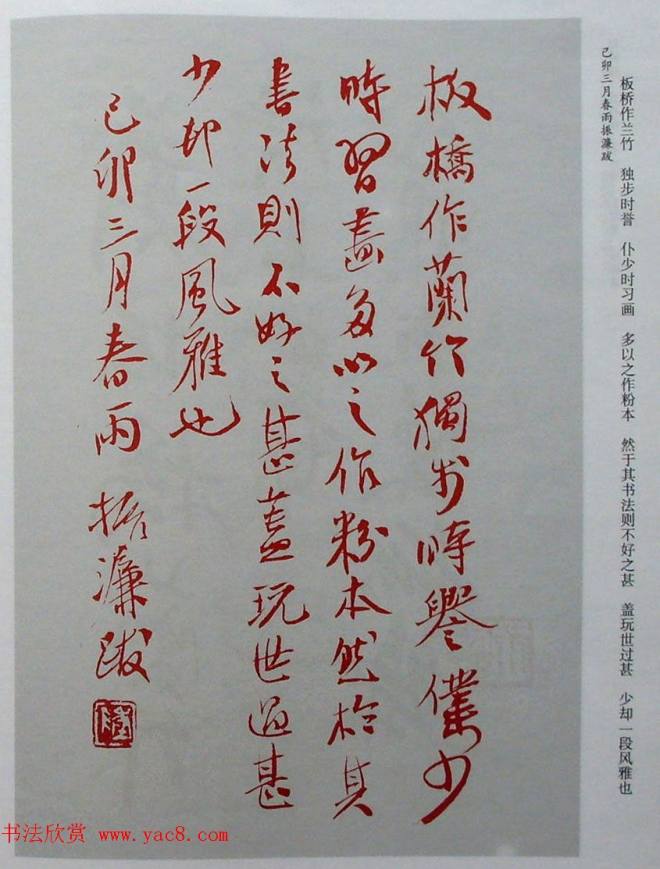 板桥作兰竹　独步时誉　仆少时习画　多以之作粉本　然于其书法则不好之甚　盖玩世过甚　少却一段风雅也
己卯三月春雨振濂跋
板橋作蘭竹獨步時譽僕少
時習畫多以之作粉本然於其
書法則不好之甚蓋玩世過甚
少却一段風雅也
己卯三月春雨 振濂跋
书法欣赏 www.yac8.com